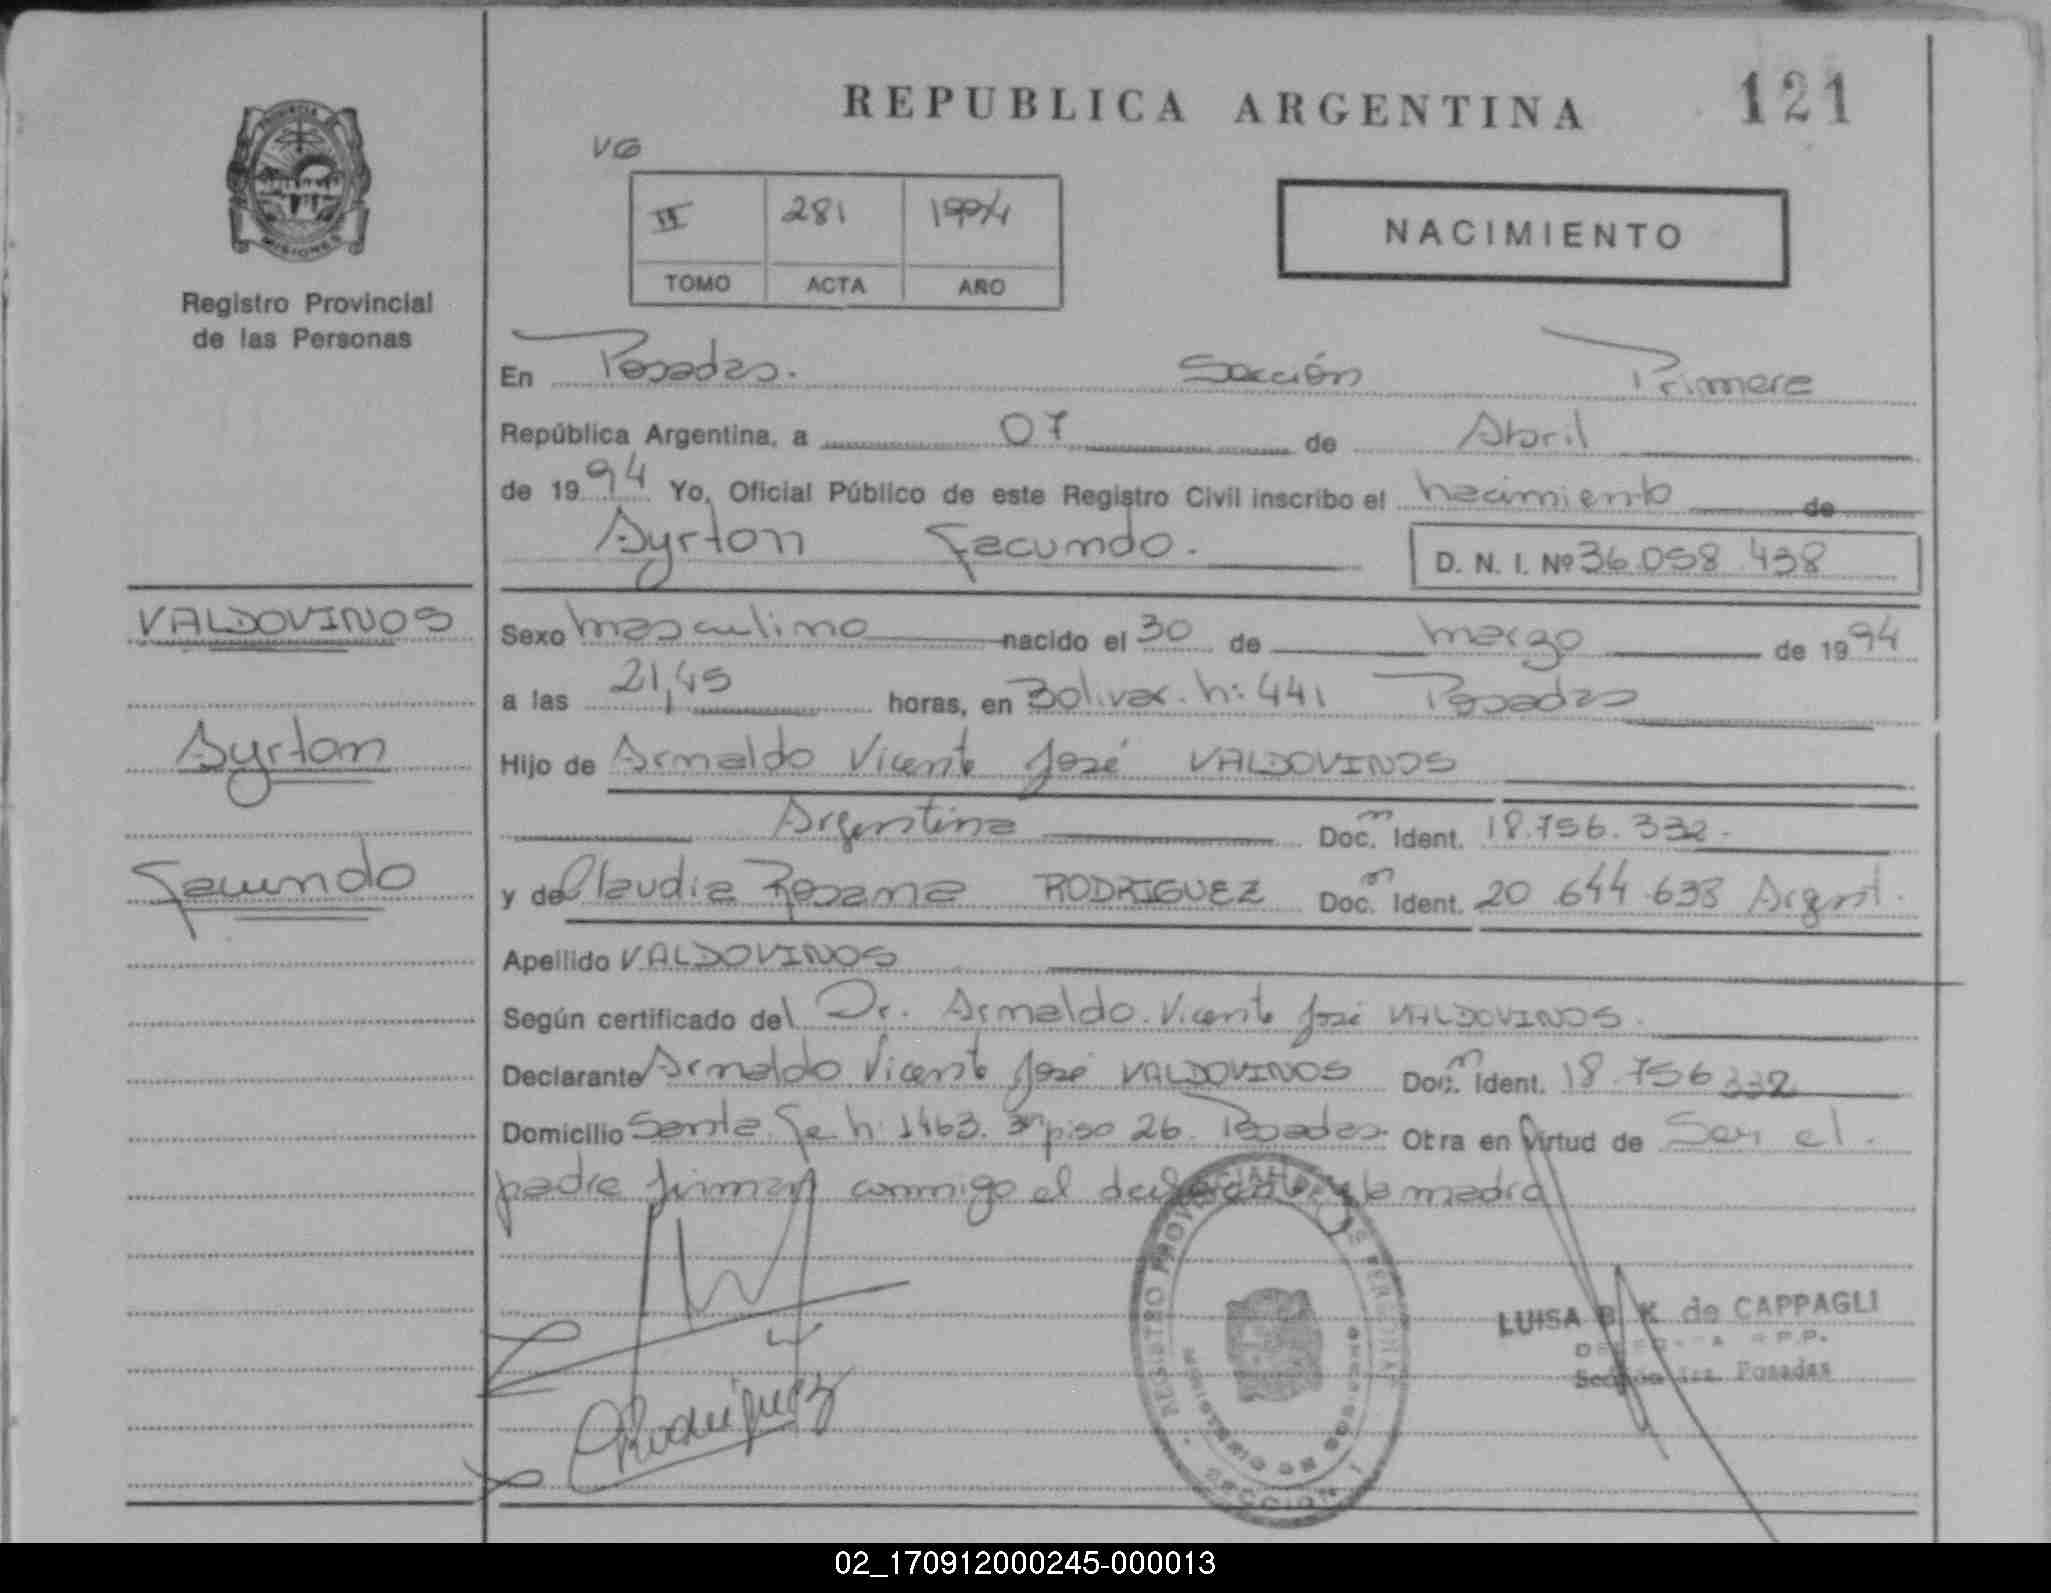 REPUBLICA ARGENTINA 121
VG
II 281 1994
TOMO ACTA AÑO
NACIMIENTO
PROVINCIA
MISIONES
Registro Provincial
de las Personas
En Posadas. Sección Primera
República Argentina, a 07 de Abril
de 1994 Yo, Oficial Público de este Registro Civil inscribo el nacimiento de
Ayrton Facundo.
D. N. I. Nº 36.058.438
VALDOVINOS
Ayrton
Facundo
Sexo masculino nacido el 30 de marzo de 1994
a las 21,45 horas, en Bolivar. n: 441 Posadas
Hijo de Arnaldo Vicente José VALDOVINOS
Argentina Doc. Ident. 18.756.332.
y de Claudia Rosana RODRIGUEZ Doc. Ident. 20.644.638 Argent.
Apellido VALDOVINOS
Según certificado del Dr. Arnaldo Vicente José VALDOVINOS.
Declarante Arnaldo Vicente José VALDOVINOS Doc. Ident. 18.756.332
Domicilio Santa Fe n: 1463. 3º piso 26. Posadas. Obra en virtud de Ser el.
padre firman conmigo el declarante y la madre
REGISTRO PROVINCIAL DE LAS PERSONAS
SECCION 1
LUISA B. K. de CAPPAGLI
Sección 1ra. Posadas
CRodriguez
02_170912000245-000013